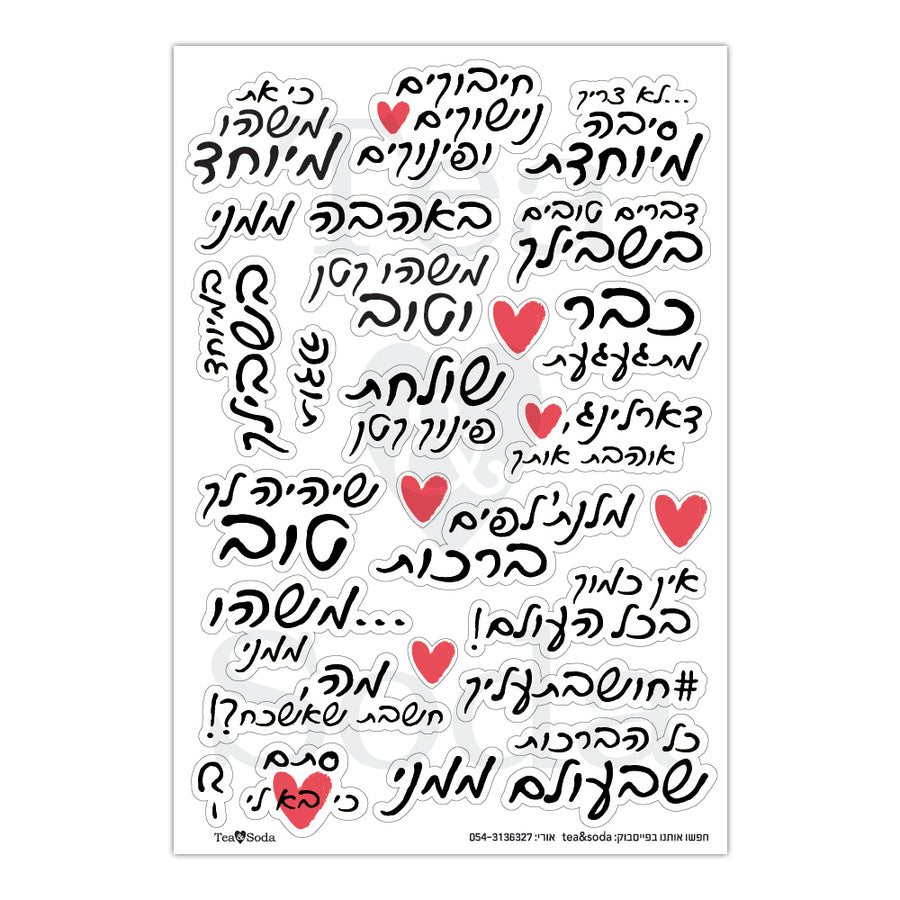 ...לא צריך
סיבה
מיוחדת
חיבוקים
נישוקים
ופינוקים
כי את
משהו
מיוחד
דברים טובים
בשבילך
באהבה
ממני
כבר
מתגעגעת
משהו קטן
וטוב
במיוחד
בשבילך
שולחת
פינוק קטן
דארלינג,
אוהבת אותך
מלנת'לפים
ברכות
שיהיה לך
טוב
אין כמוך
בכל העולם!
משהו...
ממני
#חושבתעליך
מה,
חשבת שאשכח?!
כל הברכות
שבעולם
ממני
סתם
כי בא לי
ב-
Tea&Soda
חפשו אותנו בפייסבוק: tea&soda אורי: 054-3136327
Tea
&
Soda